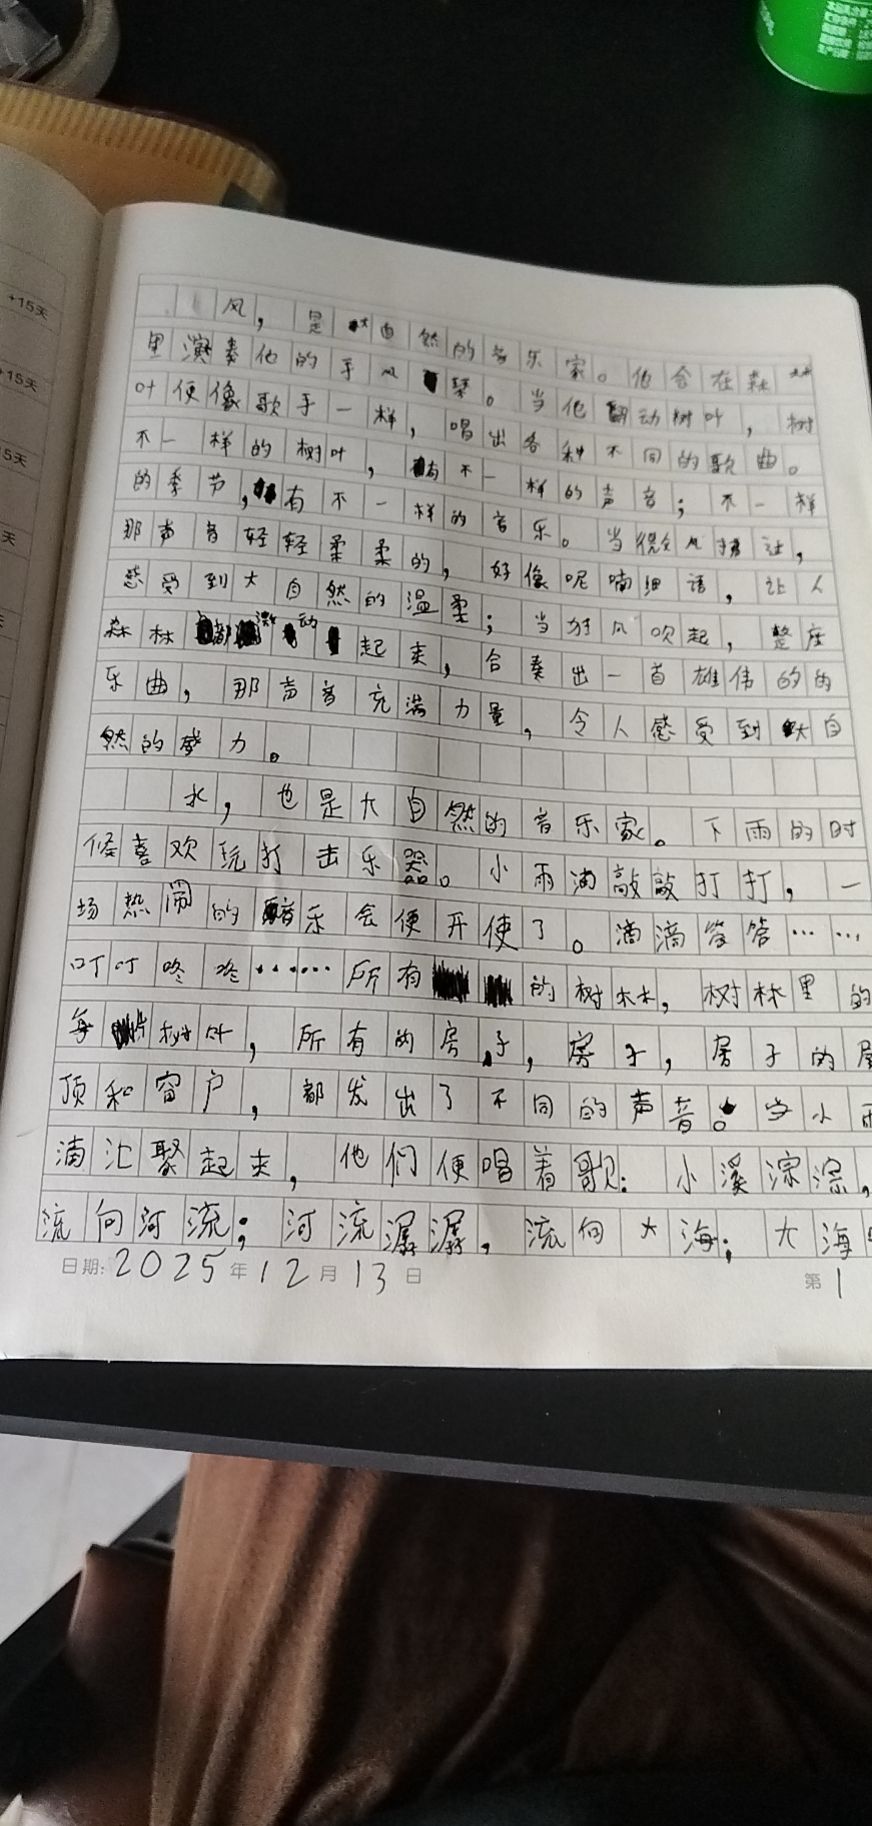 +15天
+15天
15天
天
风，是大自然的音乐家。他会在森林
里演奏他的手风琴。当他翻动树叶，树
叶便像歌手一样，唱出各种不同的歌曲。
不一样的树叶，有不一样的声音；不一样
的季节，有不一样的音乐。当微风拂过，
那声音轻轻柔柔的，好像呢喃细语，让人
感受到大自然的温柔；当狂风吹起，整座
森林都激动起来，合奏出一首雄伟的的
乐曲，那声音充满力量，令人感受到大自
然的威力。
水，也是大自然的音乐家。下雨的时
候喜欢玩打击乐器。小雨滴敲敲打打，一
场热闹的音乐会便开使了。滴滴答答……
叮叮咚咚……所有的树林，树林里的
每片树叶，所有的房子，房子，房子的屋
顶和窗户，都发出了不同的声音。当小雨
滴汇聚起来，他们便唱着歌：小溪淙淙，
流向河流；河流潺潺，流向大海；大海
日期：2025年12月13日
第1